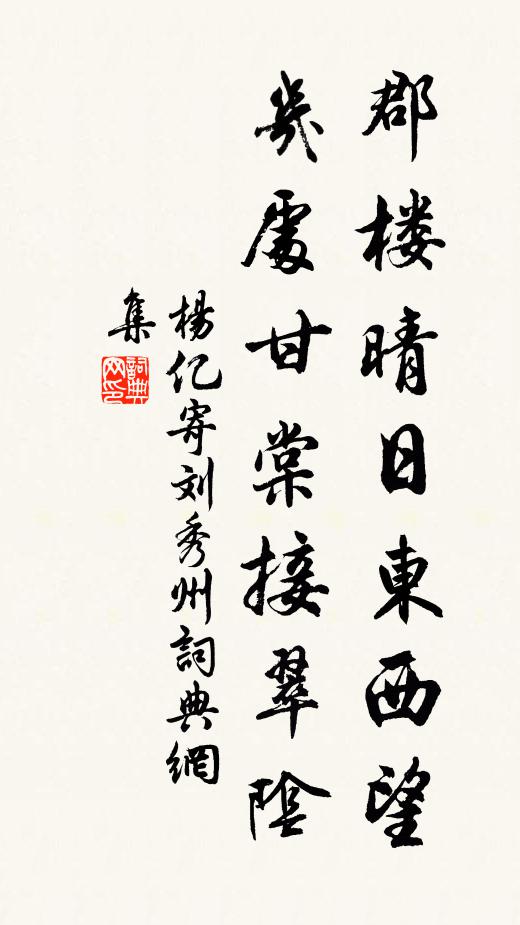 郡楼晴日東西望
幾處甘棠接翠陰
楊亿寄刘秀州詞典網
集
詞典
网印